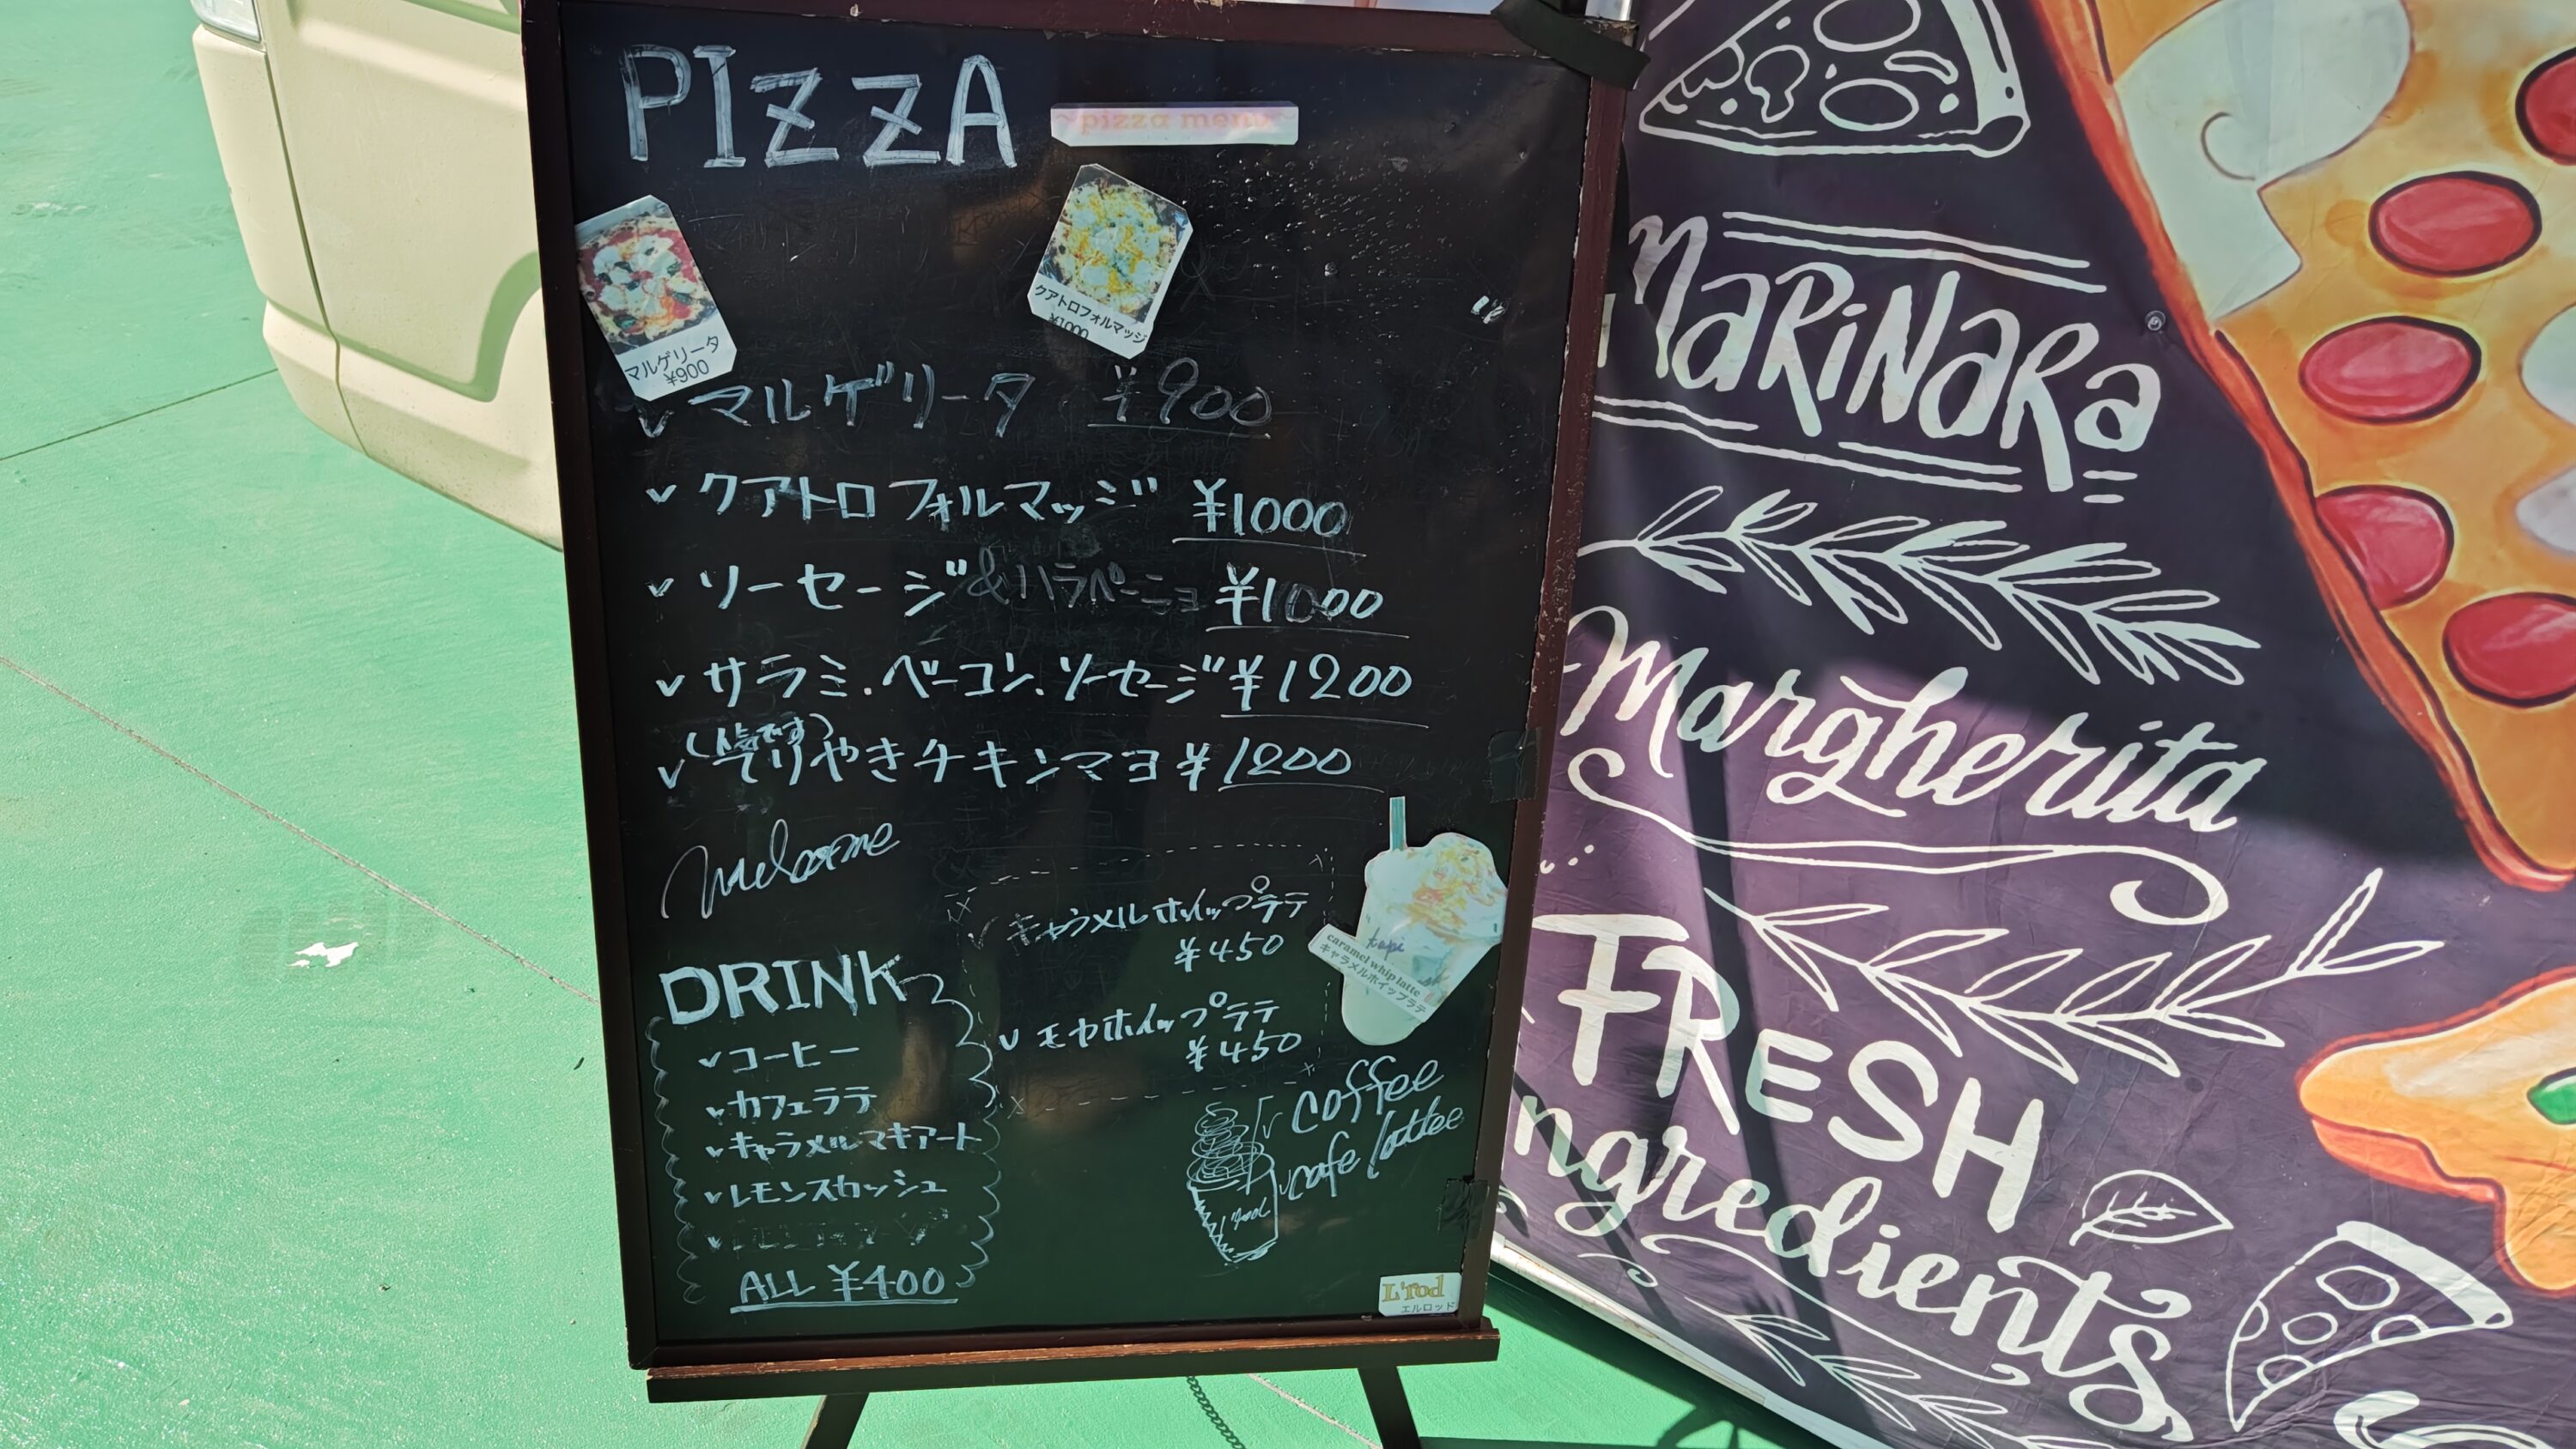 PIZZA
pizza menu
マルゲリータ
¥900
クアトロフォルマッジ
¥1000
マルゲリータ ¥900
クアトロフォルマッジ ¥1000
ソーセージ&ハラペーニョ ¥1000
サラミ.ベーコン.ソーセージ ¥1200
(人気です)
てりやきチキンマヨ ¥1200
Welcome
キャラメルホイップラテ
¥450
モカホイップラテ
¥450
tapi
caramel whip latte
キャラメルホイップラテ
DRINK
コーヒー
カフェラテ
キャラメルマキアート
レモンスカッシュ
ALL ¥400
coffee
cafe lattee
L'rod
L'rod
エルロッド
MaRiNaRa
Margherita
FRESH
ngredients